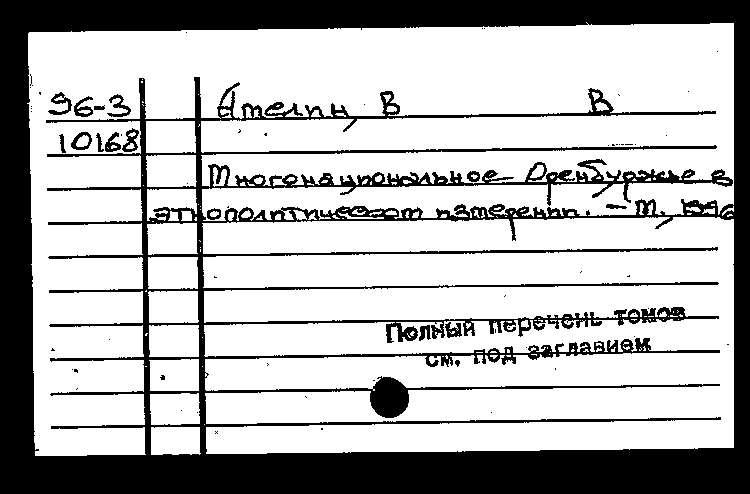 96-3 Ателин, В В
10168
Многонациональное Оренбуржье в
этнополитическом измерении. – М., 1996
Полный перечень томов
см. под заглавием